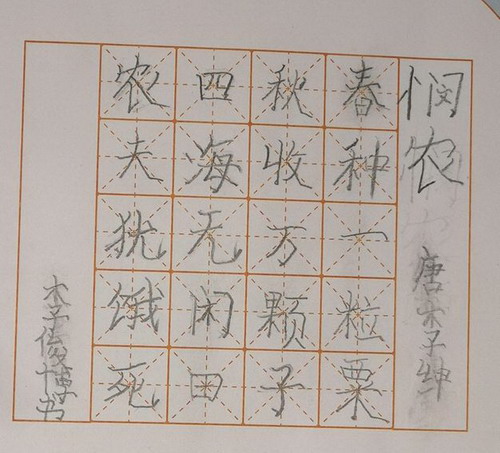 悯农
唐 李绅
春种一粒粟
秋收万颗子
四海无闲田
农夫犹饿死
李俊博书